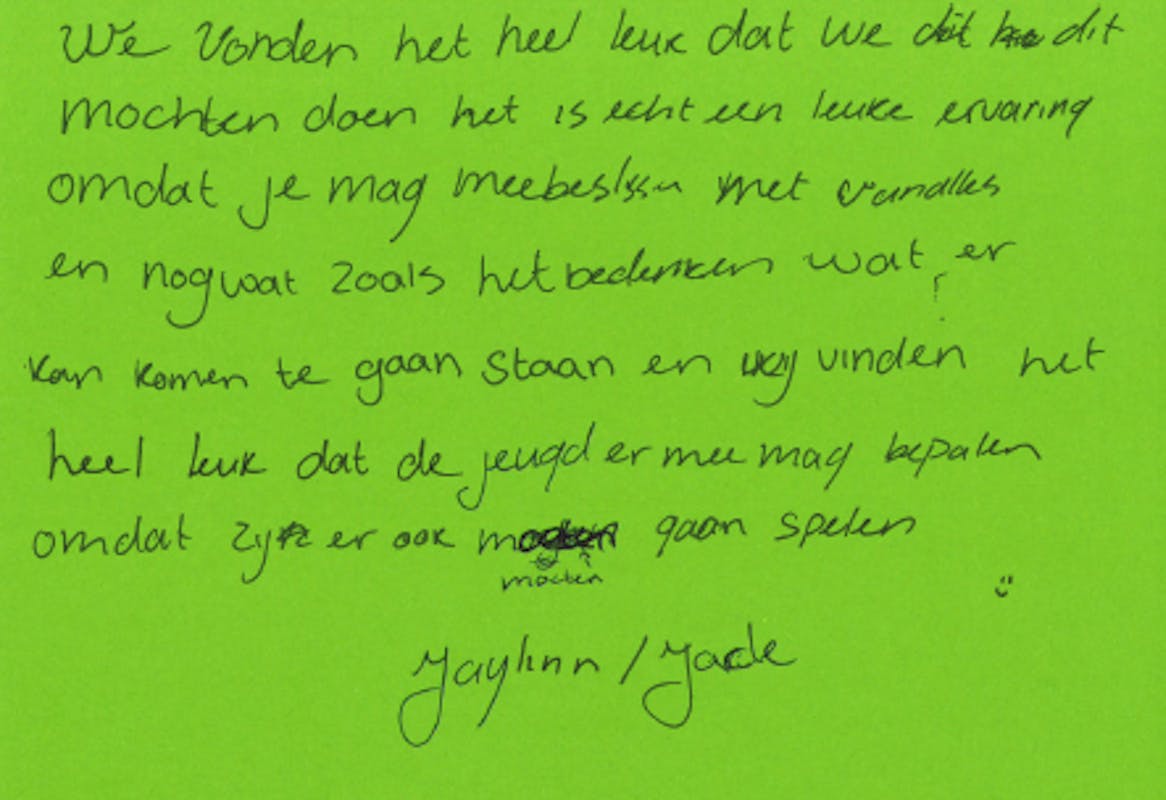 We vonden het heel leuk dat we dit
mochten doen het is echt een leuke ervaring
omdat je mag meebeslissn met vandlles
en nog wat zoals het bedenken wat er
kan komen te gaan staan en wij vinden het
heel leuk dat de jeugd er mee mag bepalen
omdat zij er ook gaan spelen
moeten
:)
Jaylinn / Jade